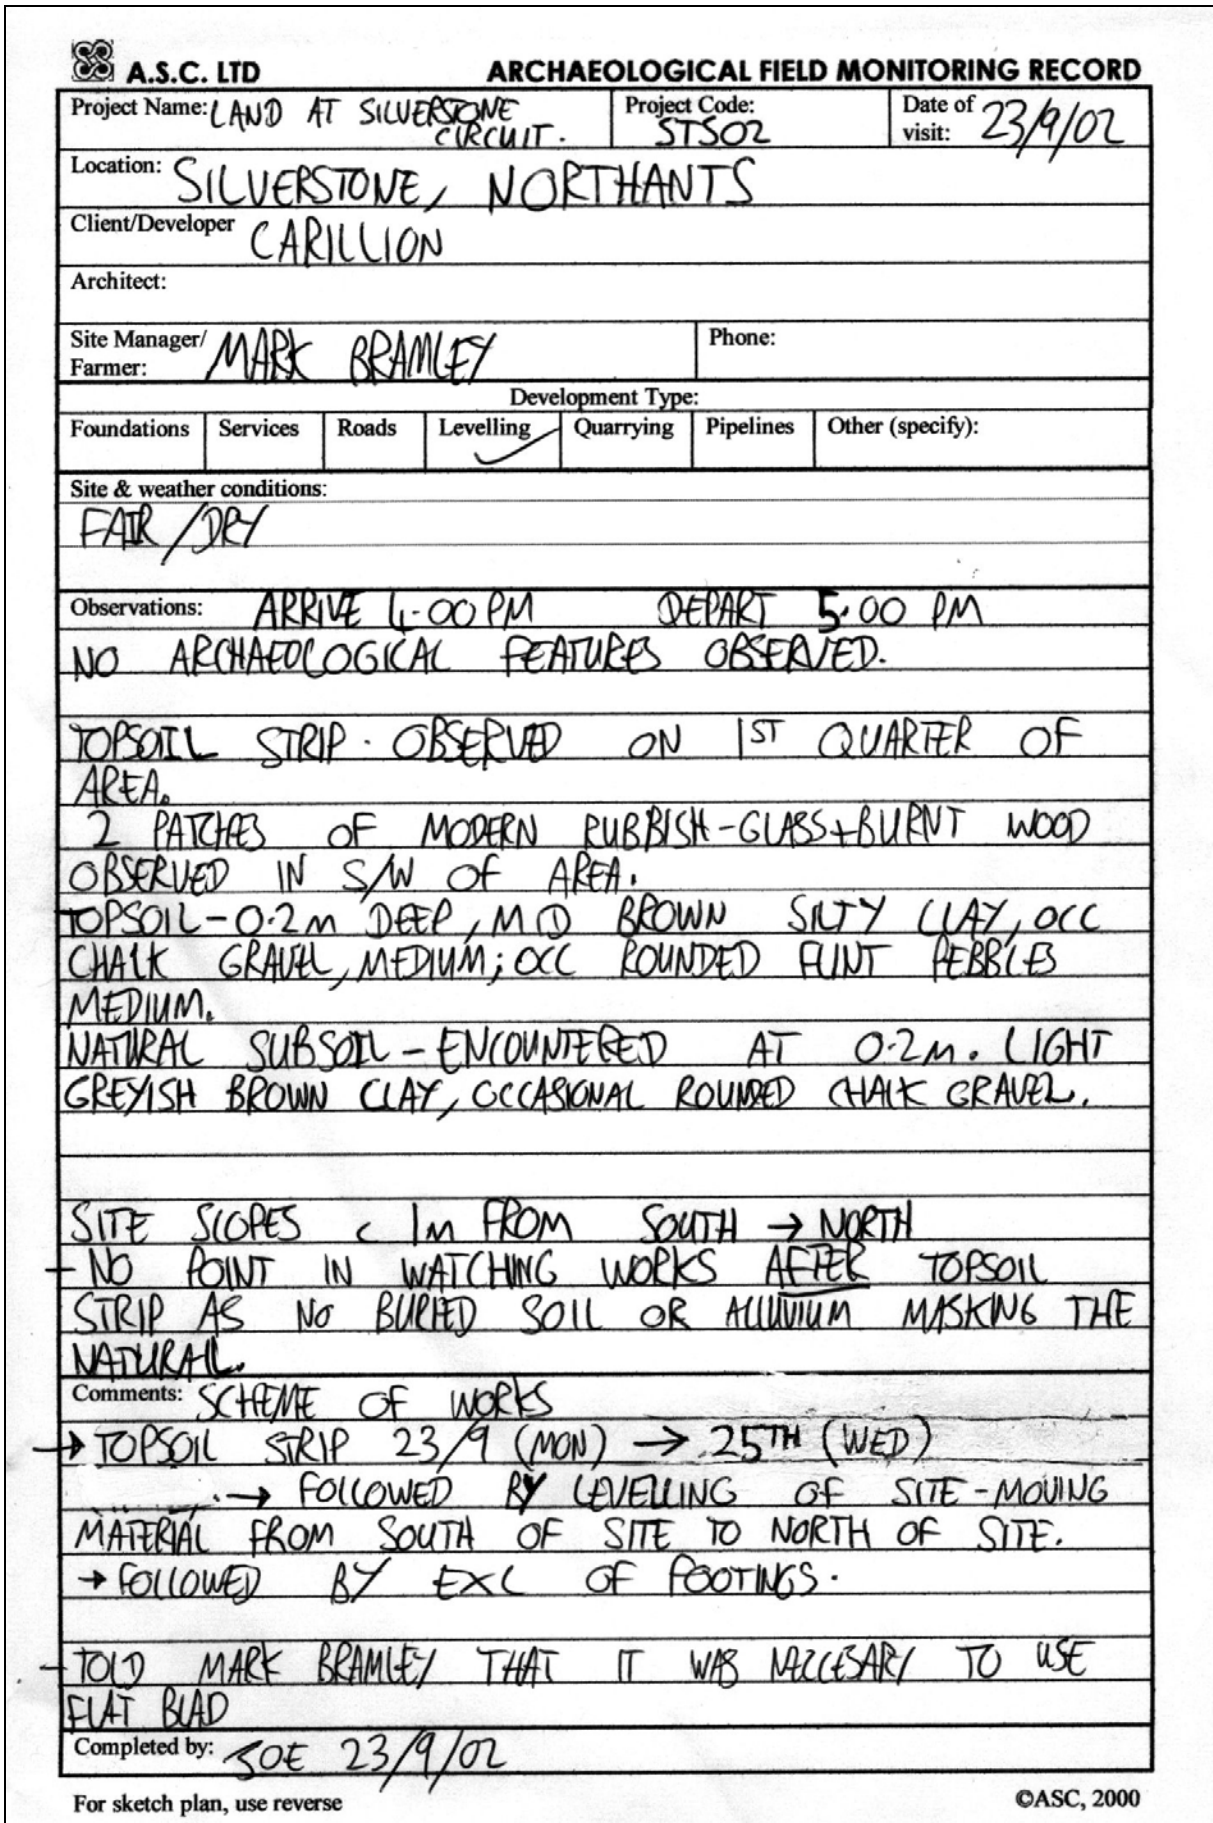 A.S.C. LTD ARCHAEOLOGICAL FIELD MONITORING RECORD
Project Name: LAND AT SILVERSTONE CIRCUIT. Project Code: STS02 Date of visit: 23/9/02
Location: SILVERSTONE, NORTHANTS
Client/Developer CARILLION
Architect:
Site Manager/ Farmer: MARK BRAMLEY Phone:
Development Type:
Foundations Services Roads Levelling ✓ Quarrying Pipelines Other (specify):
Site & weather conditions:
FAIR/DRY
Observations: ARRIVE 4.00 PM DEPART 5.00 PM
NO ARCHAEOLOGICAL FEATURES OBSERVED.
TOPSOIL STRIP. OBSERVED ON 1ST QUARTER OF
AREA.
2 PATCHES OF MODERN RUBBISH-GLASS+BURNT WOOD
OBSERVED IN S/W OF AREA.
TOPSOIL-0.2m DEEP, MID BROWN SILTY CLAY, OCC
CHALK GRAVEL, MEDIUM; OCC ROUNDED FLINT PEBBLES
MEDIUM.
NATURAL SUBSOIL-ENCOUNTERED AT 0.2m. LIGHT
GREYISH BROWN CLAY, OCCASIONAL ROUNDED CHALK GRAVEL.
SITE SLOPES c 1m FROM SOUTH → NORTH
- NO POINT IN WATCHING WORKS AFTER TOPSOIL
STRIP AS NO BURIED SOIL OR ALLUVIUM MASKING THE
NATURAL.
Comments: SCHEME OF WORKS
→ TOPSOIL STRIP 23/9 (MON) → 25TH (WED)
→ FOLLOWED BY LEVELLING OF SITE-MOVING
MATERIAL FROM SOUTH OF SITE TO NORTH OF SITE.
→ FOLLOWED BY EXC OF FOOTINGS.
- TOLD MARK BRAMLEY THAT IT WAS NECCESARY TO USE
FLAT BLAD
Completed by: JOE 23/9/02
For sketch plan, use reverse ©ASC, 2000